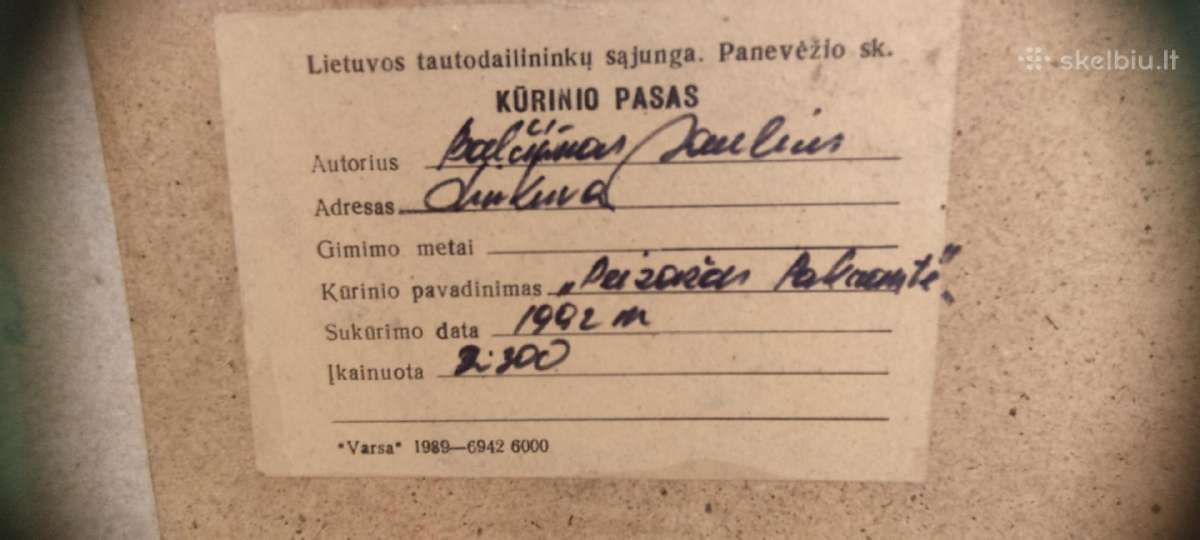 skelbiu.lt
Lietuvos tautodailininkų sąjunga. Panevėžio sk.
KŪRINIO PASAS
Autorius Balčiūnas Saulius
Adresas Linkuva
Gimimo metai
Kūrinio pavadinimas „Peizažas
Sukūrimo data 1992 m
Įkainuota
"Varsa" 1989—6942 6000